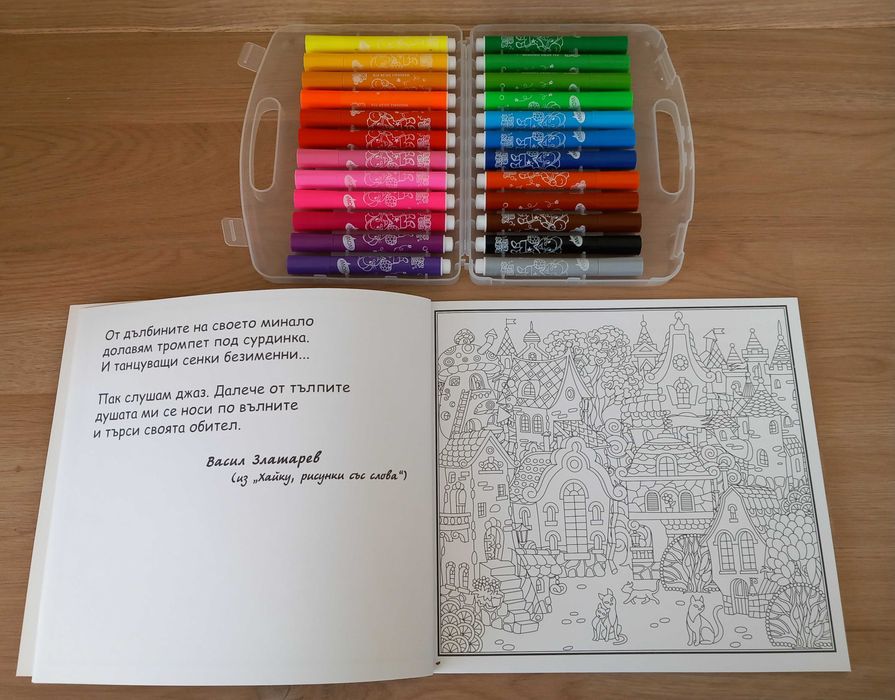 От дълбините на своето минало
долавям тромпет под сурдинка.
И танцуващи сенки безименни...
Пак слушам джаз. Далече от тълпите
душата ми се носи по вълните
и търси своята обител.
Васил Златарев
(из „Хайку, рисунки със слова“)